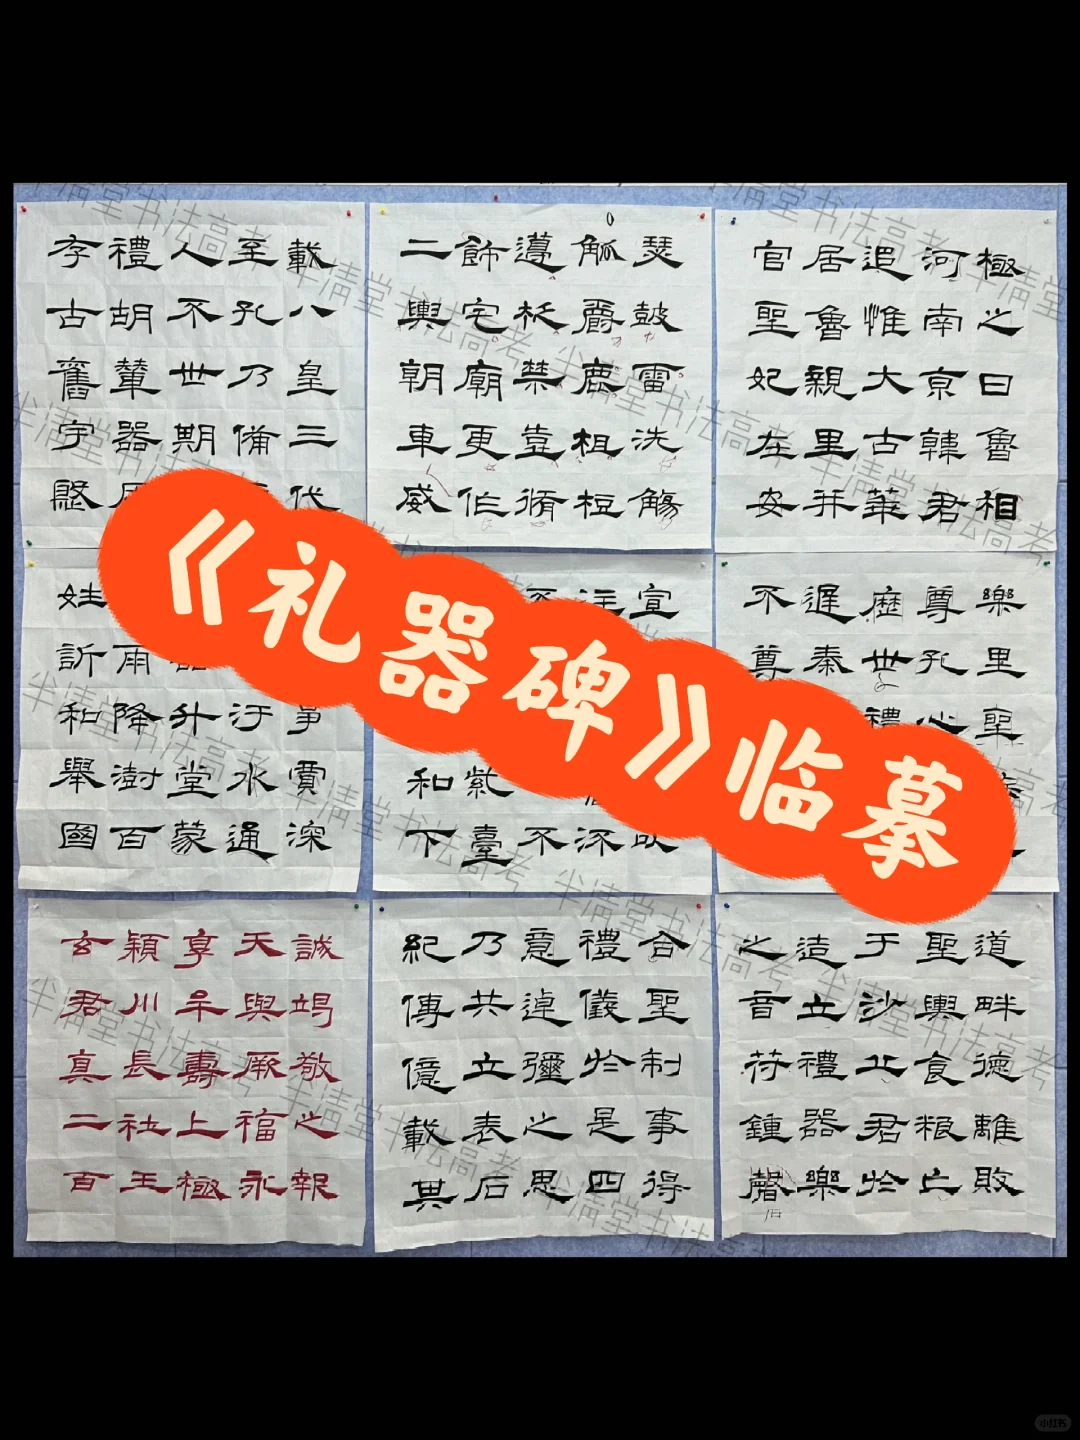 載八皇三代
至孔乃備
人不世期
禮胡輦器
存古舊宇
瑟鼓雷洗觴
觚爵鹿柤梪
遵柉禁壺脩
飾宅廟更作
二輿朝車威
極之日魯相
河南京韓君
追惟大古華
居魯親里并
官聖妃在安
爭賈深
汙水通
升堂蒙
雨降澍百
姓訢和舉國
宣
不
紫臺
和下
樂里聖
尊孔心
歷世禮
遲秦
不尊
誠竭敬之報
天與厥福永
享牟壽上極
穎川長社王
玄君真二百
合聖制事得
禮儀於是四
意逴彌之思
乃共立表石
紀傳億載其
道畔德離敗
聖輿食粮亡
于沙丘君於
造立禮器樂
之音符鍾磬
《礼器碑》临摹
半清堂书法高考
小红书